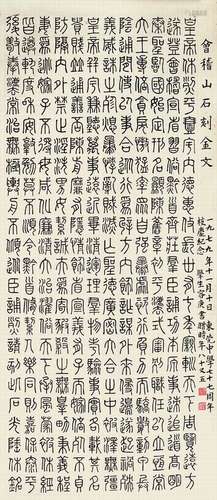 會稽山石刻全文
皇帝休烈平壹宇內德惠攸長卅有七年親巡天下周覽遠方
遂登會稽宣省習俗黔首齋莊群臣誦功本原事迹追道高明
秦聖臨國始定刑名顯陳舊章初平法式審別職任以立恆常
六王專倍貪戾傲猛率眾自強暴虐恣行負力而驕數動甲兵
陰通間使以事合從行為辟方內飾詐謀外來侵邊遂起禍殃
義威誅之殄熄暴悖亂賊滅亡聖德廣密六合之中被澤無疆
皇帝并宇兼聽萬事遠近畢清運理群物考驗事實各載其名
貴賤並通善否陳前靡有隱情飾省宣義有子而嫁倍死不貞
防隔內外禁止淫泆男女絜誠夫為寄豭殺之無罪男秉義程
妻為逃嫁子不得母咸化廉清大治濯俗天下承風蒙被休經
皆遵度軌和安敦勉莫不順令黔首脩絜人樂同則嘉保太平
後敬奉法常治無極輿舟不傾從臣誦烈請刻此石光垂休銘
一九七九年十一月八日東莞中學七十七周年
校慶紀念 學生容庚書贈時年八十又五